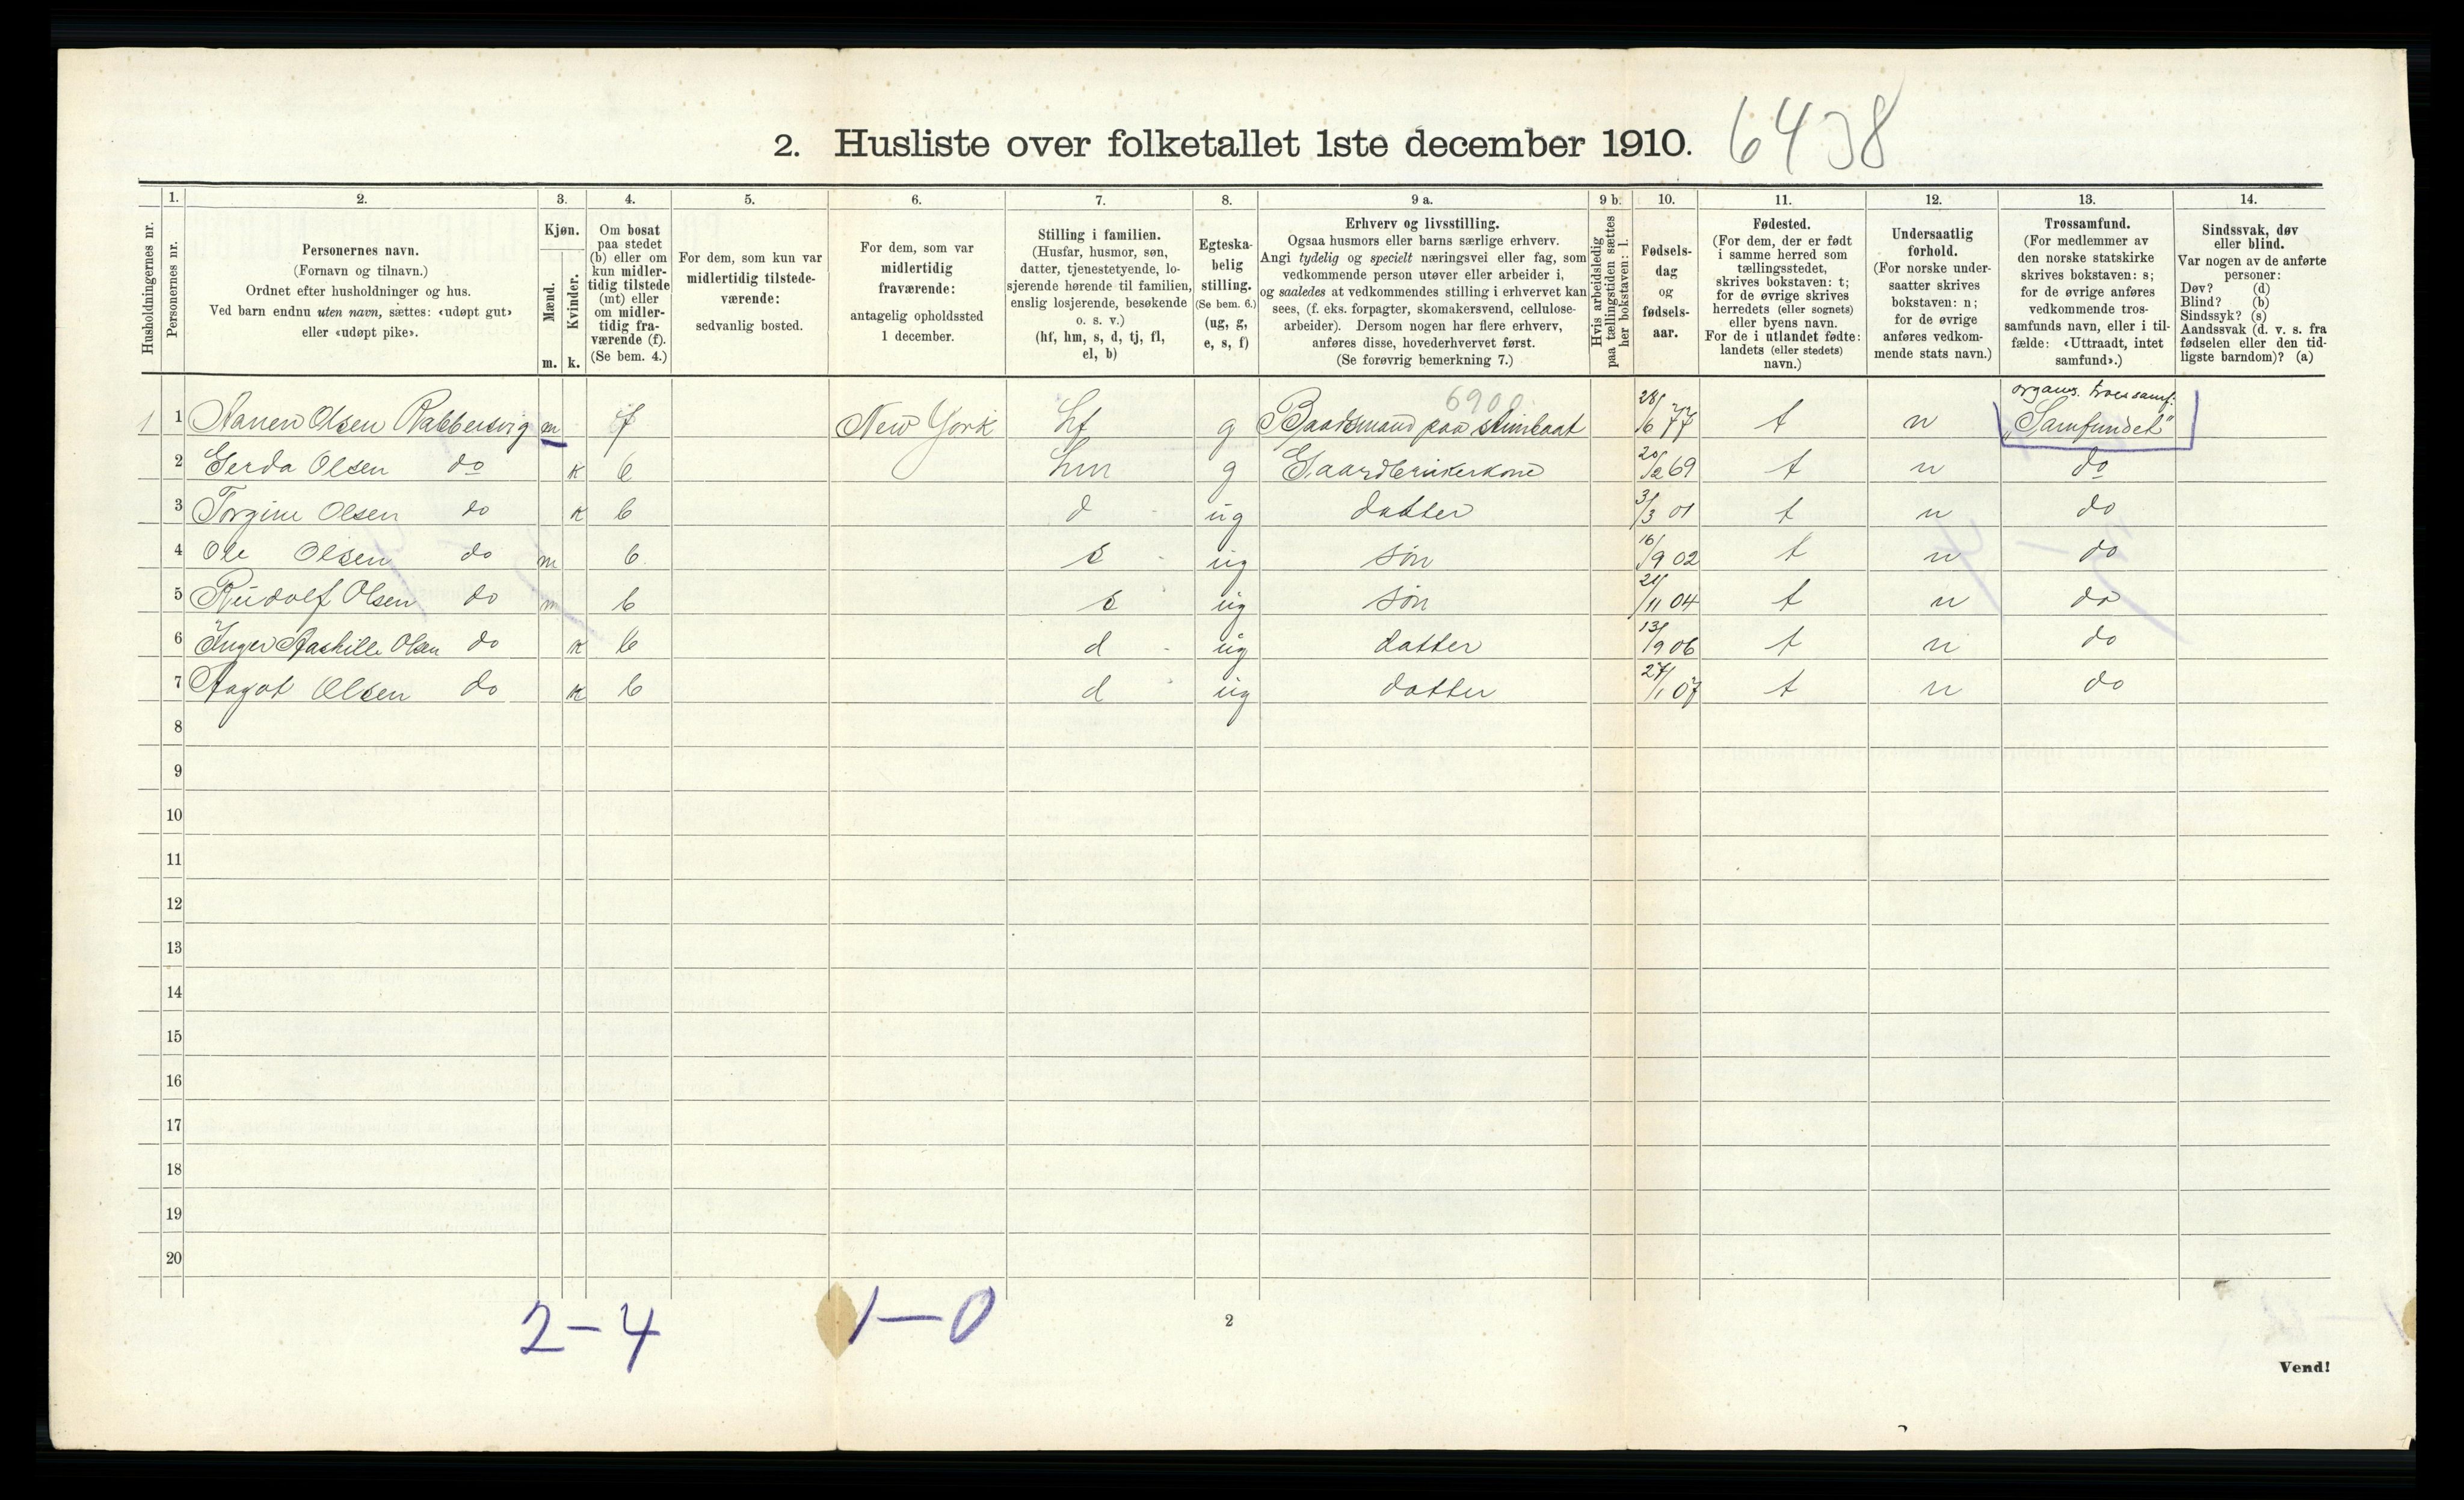 2. Husliste over folketallet 1ste december 1910. 6438
1. 2. 3. 4. 5. 6. 7. 8. 9 a. 9 b. 10. 11. 12. 13. 14.
Husholdningernes nr.
Personernes nr.
Personernes navn.
(Fornavn og tilnavn.)
Ordnet efter husholdninger og hus.
Ved barn endnu uten navn, sættes: «udøpt gut»
eller «udøpt pike».
Kjøn.
Mænd.
Kvinder.
m. k.
Om bosat
paa stedet
(b) eller om
kun midler-
tidig tilstede
(mt) eller
om midler-
tidig fra-
værende (f).
(Se bem. 4.)
For dem, som kun var
midlertidig tilstede-
værende:
sedvanlig bosted.
For dem, som var
midlertidig
fraværende:
antagelig opholdssted
1 december.
Stilling i familien.
(Husfar, husmor, søn,
datter, tjenestetyende, lo-
sjerende hørende til familien,
enslig losjerende, besøkende
o. s. v.)
(hf, hm, s, d, tj, fl,
el, b)
Egteska-
belig
stilling.
(Se bem. 6.)
(ug, g,
e, s, f)
Erhverv og livsstilling.
Ogsaa husmors eller barns særlige erhverv.
Angi tydelig og specielt næringsvei eller fag, som
vedkommende person utøver eller arbeider i,
og saaledes at vedkommendes stilling i erhvervet kan
sees, (f. eks. forpagter, skomakersvend, cellulose-
arbeider). Dersom nogen har flere erhverv,
anføres disse, hovederhvervet først.
(Se forøvrig bemerkning 7.)
Hvis arbeidsledig
paa tællingstiden sættes
her bokstaven: l.
Fødsels-
dag
og
fødsels-
aar.
Fødested.
(For dem, der er født
i samme herred som
tællingsstedet,
skrives bokstaven: t;
for de øvrige skrives
herredets (eller sognets)
eller byens navn.
For de i utlandet fødte:
landets (eller stedets)
navn.)
Undersaatlig
forhold.
(For norske under-
saatter skrives
bokstaven: n;
for de øvrige
anføres vedkom-
mende stats navn.)
Trossamfund.
(For medlemmer av
den norske statskirke
skrives bokstaven: s;
for de øvrige anføres
vedkommende tros-
samfunds navn, eller i til-
fælde: «Uttraadt, intet
samfund».)
Sindssvak, døv
eller blind.
Var nogen av de anførte
personer:
Døv? (d)
Blind? (b)
Sindssyk? (s)
Aandssvak (d. v. s. fra
fødselen eller den tid-
ligste barndom)? (a)
6900 organs. troessamf.
1 1 Olsen m f New York hf g Baadsmand paa stimbaat 28/6 77 t n "Samfundet"
2 Gerda Olsen do k b hm g Gaardbrukerkone 20/2 69 t n do
3 Torgine Olsen do k b d ug datter 3/3 01 t n do
4 Ole Olsen do m b s ug søn 16/9 02 t n do
5 Rudolf Olsen do m b s ug søn 21/11 04 t n do
6 Inger Olsen do k b d ug datter 13/9 06 t n do
7 Aagot Olsen do k b d ug datter 27/1 07 t n do
8
9
10
11
12
13
14
15
16
17
18
19
20
2-4 1-0 2
Vend!